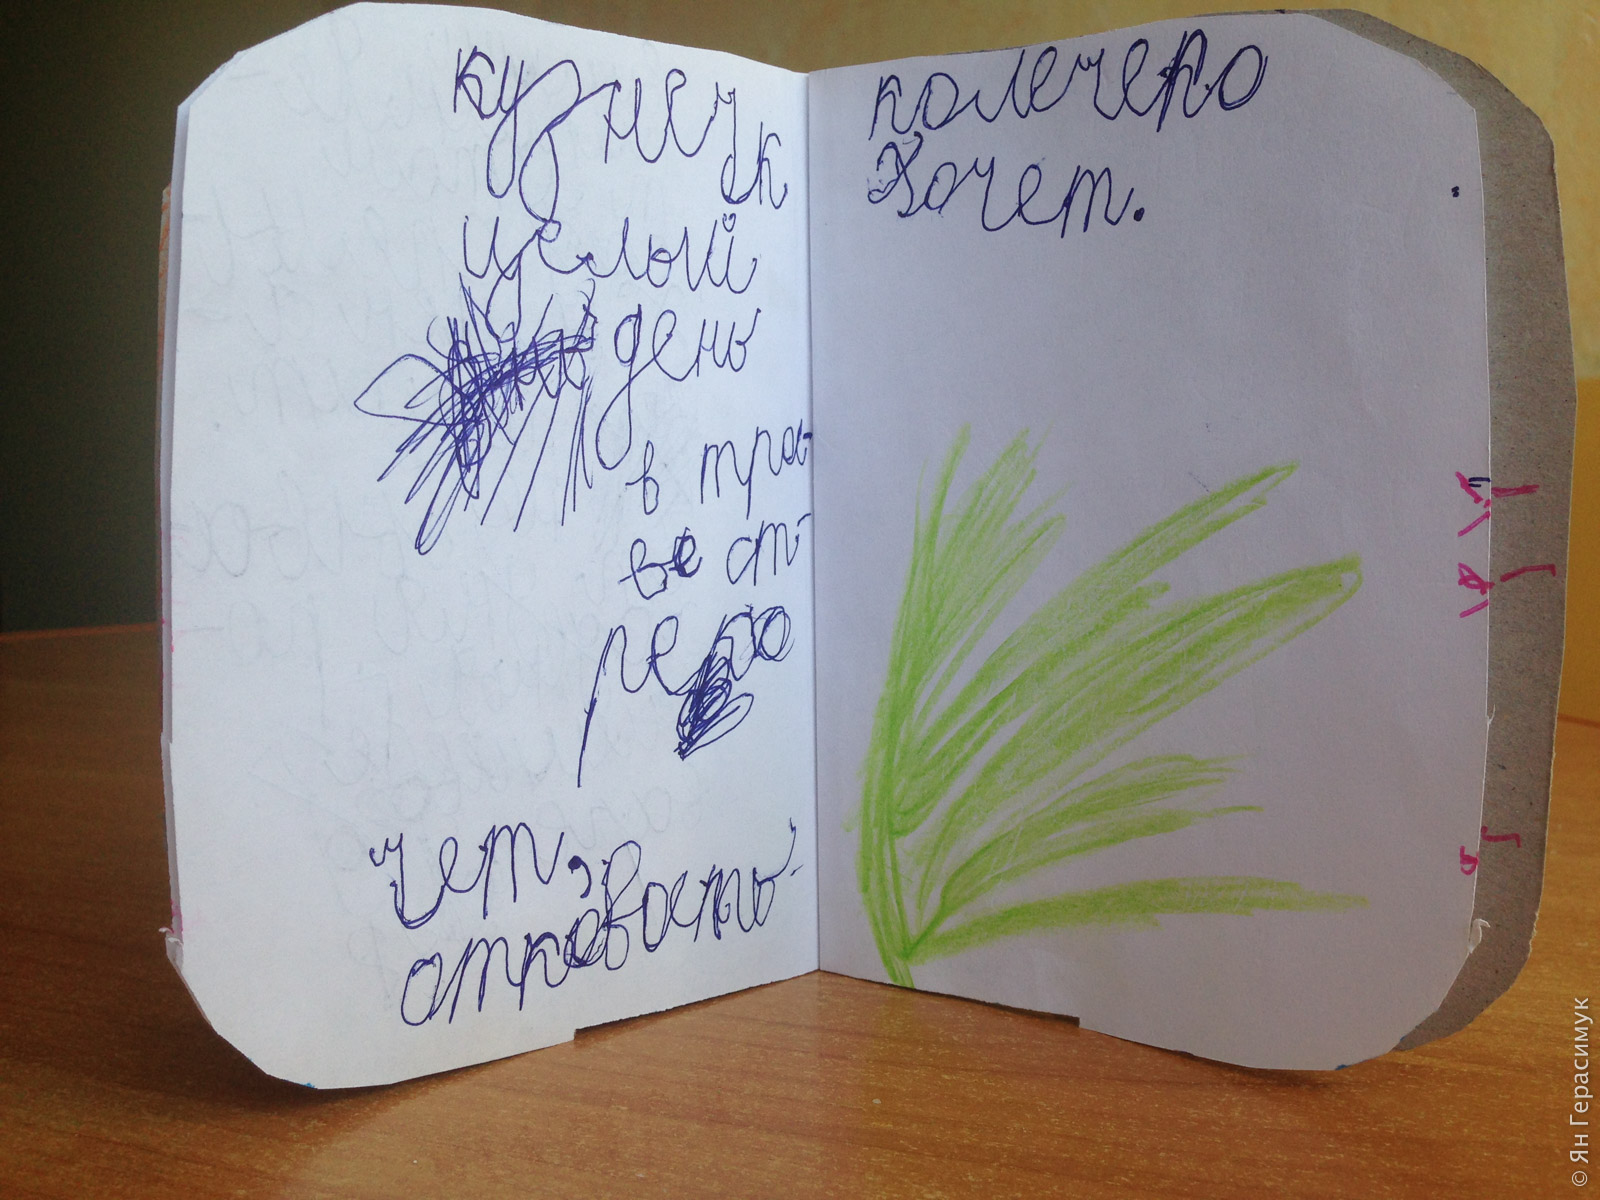 кузнеч
ик
целый
день
в тра-
ве ст-
реко
чет,
отковать
колечеко
хочет.
© Ян Герасимук